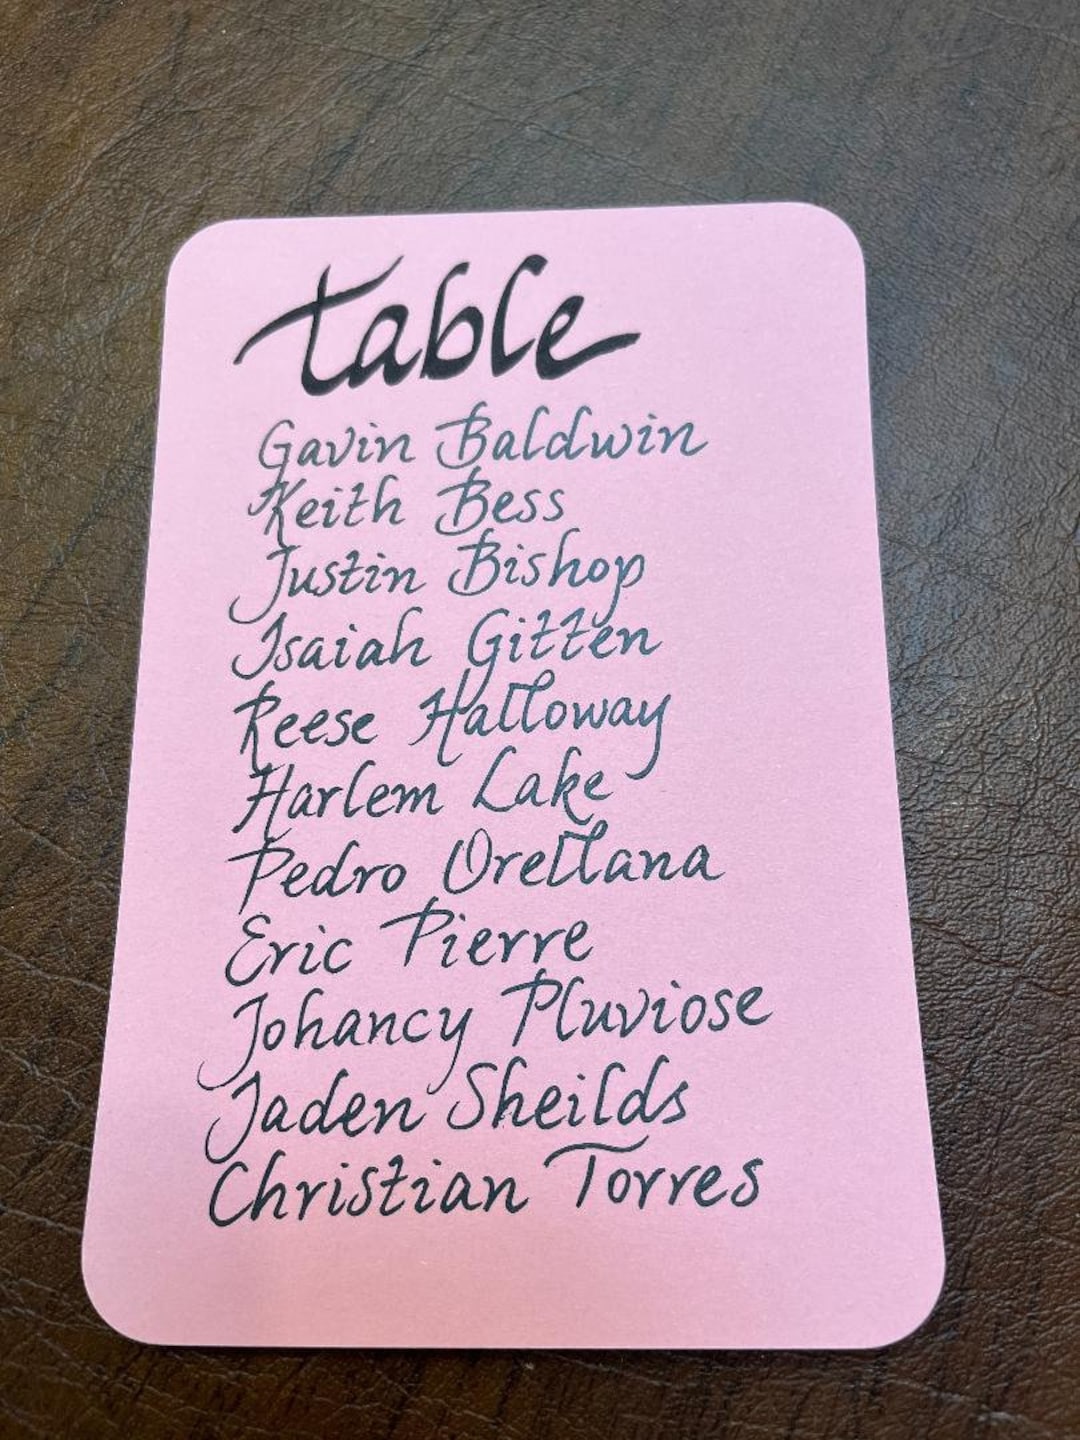 table
Gavin Baldwin
Keith Bess
Justin Bishop
Isaiah Gitten
Reese Halloway
Harlem Lake
Pedro Orellana
Eric Pierre
Johancy Pluviose
Jaden Sheilds
Christian Torres